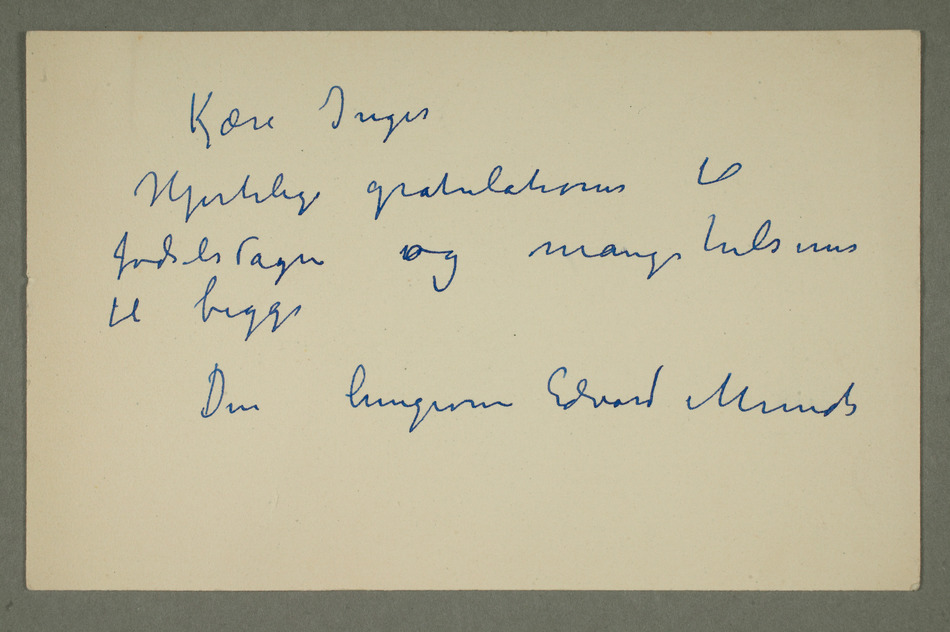 Kjære Inger
Hjertelige gratulationer til
fødselsdagen og mange hilsener
til begge
Din hengivne Edvard Munch